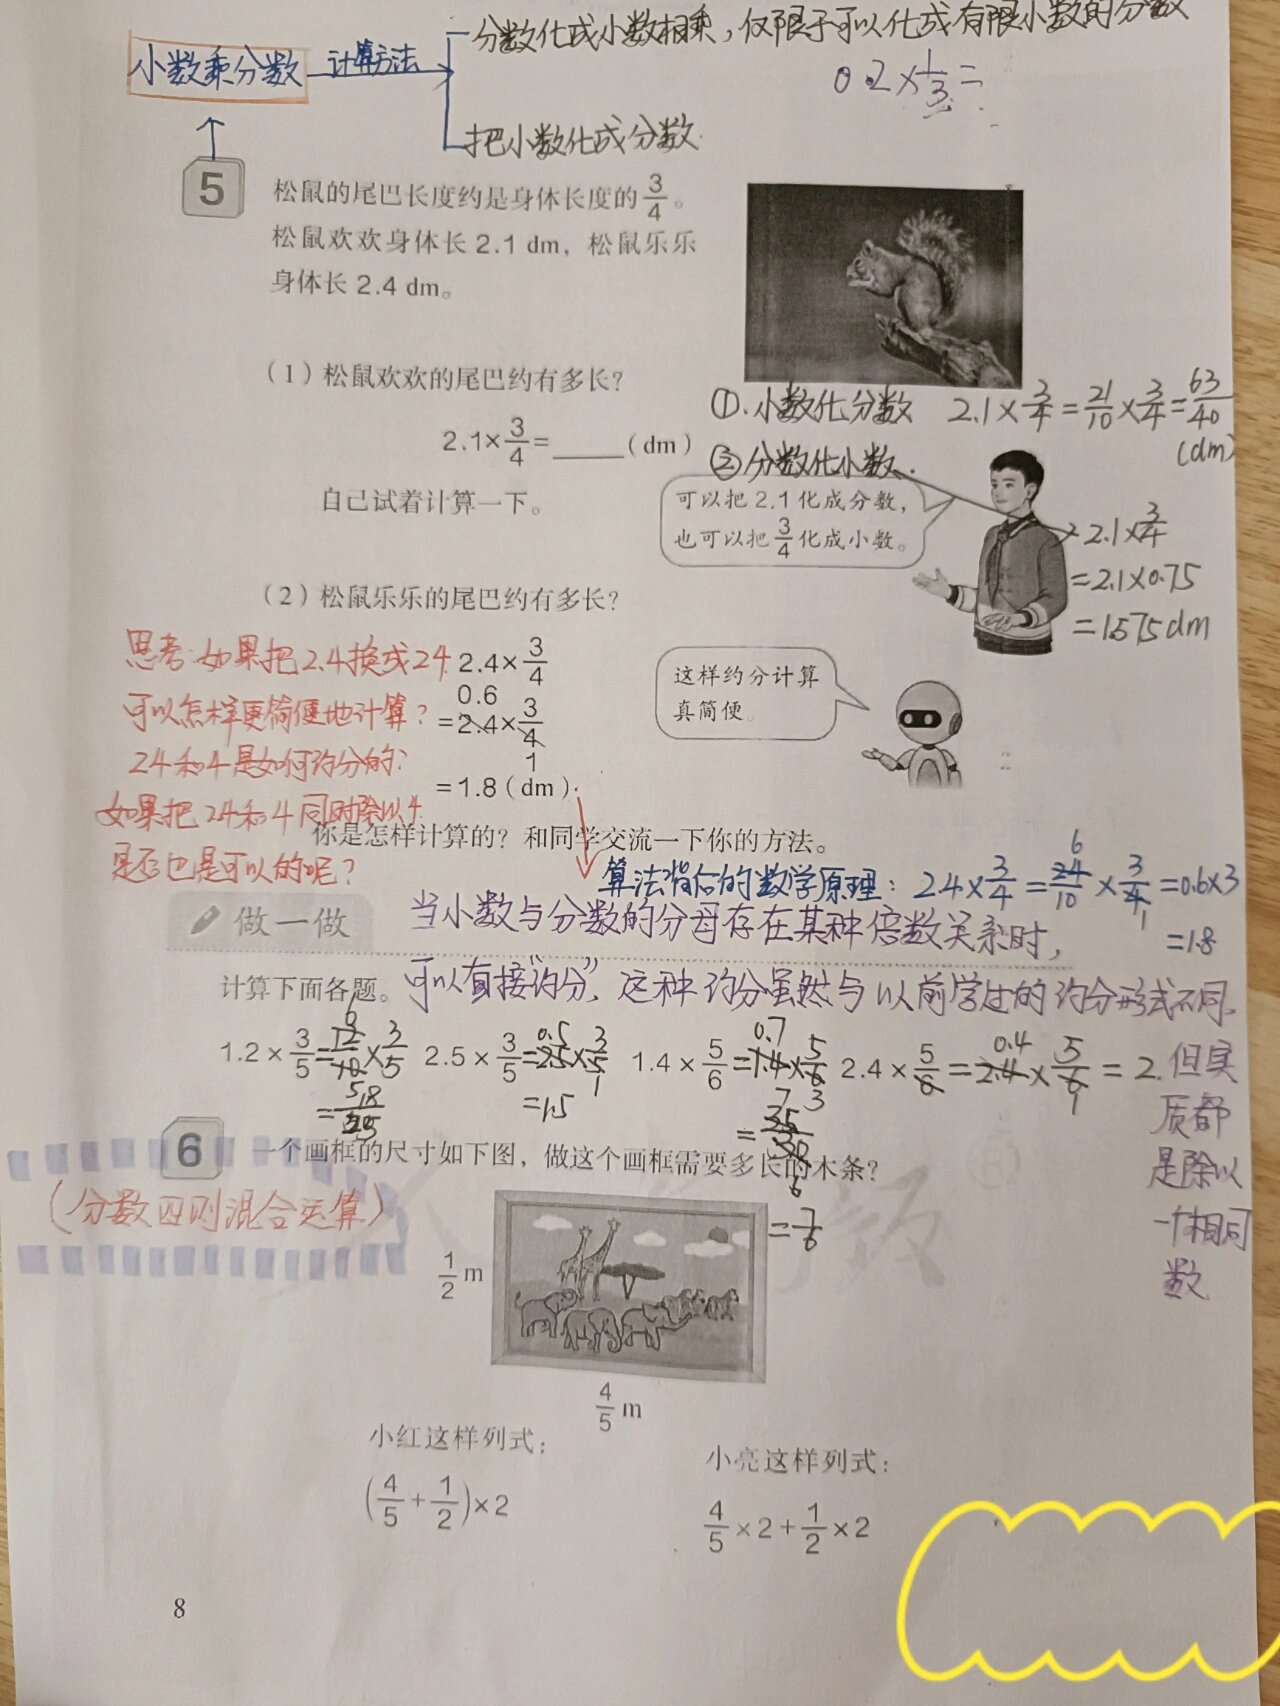 分数化成小数相乘，仅限于可以化成有限小数的分数
小数乘分数 计算方法
0.2×1/3=
把小数化成分数.
5
松鼠的尾巴长度约是身体长度的3/4。
松鼠欢欢身体长 2.1 dm，松鼠乐乐
身体长 2.4 dm。
（1）松鼠欢欢的尾巴约有多长？
①.小数化分数 2.1×3/4=21/10×3/4=63/40
(dm)
2.1×3/4=_____（dm）
②分数化小数.
自己试着计算一下。
可以把 2.1 化成分数，
也可以把3/4化成小数。
2.1×3/4
=2.1×0.75
=1.575dm
（2）松鼠乐乐的尾巴约有多长？
思考:如果把2.4换成24
可以怎样更简便地计算？
24和4是如何约分的?
如果把24和4同时除以4
是否也是可以的呢？
2.4×3/4
0.6
=2.4×3/4
1
=1.8（dm）
这样约分计算
真简便。
你是怎样计算的？和同学交流一下你的方法。
6
算法背后的数学原理：2.4×3/4=24/10×3/4=0.6×3
1
=1.8
做一做
当小数与分数的分母存在某种倍数关系时，
计算下面各题。
可以直接“约分”，这种约分虽然与以前学过的约分形式不同，
但实
质都
是除以
一个相同
数
1.2×3/5=12/10×3/5
6
5
=18/25
2.5×3/5=2.5×3/5
0.5
1
=1.5
1.4×5/6=1.4×5/6
0.7
3
7
=35/30
6
=7/6
2.4×5/6=2.4×5/6=2.
0.4
1
6
一个画框的尺寸如下图，做这个画框需要多长的木条？
（分数四则混合运算）
1/2 m
4/5 m
小红这样列式：
(4/5+1/2)×2
小亮这样列式：
4/5×2+1/2×2
8